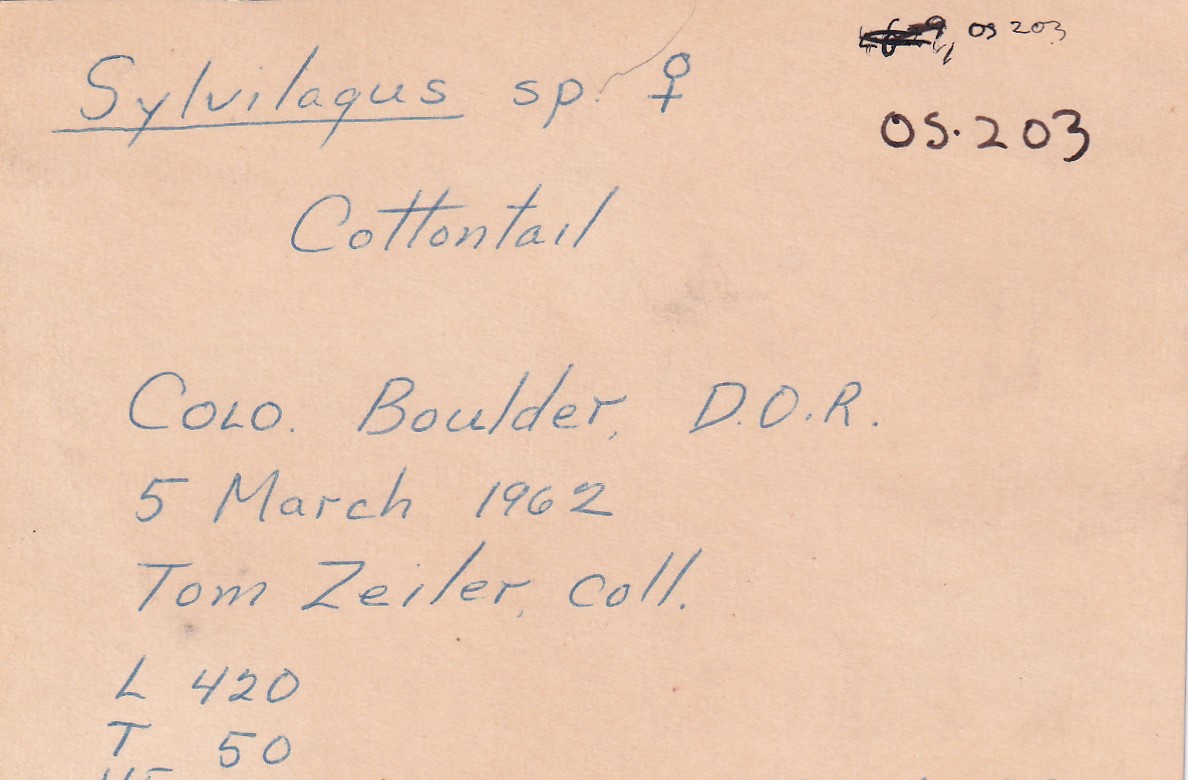 OS 203
Sylvilagus sp. ♀
OS.203
Cottontail
COLO. Boulder, D.O.R.
5 March 1962
Tom Zeiler, coll.
L 420
T 50